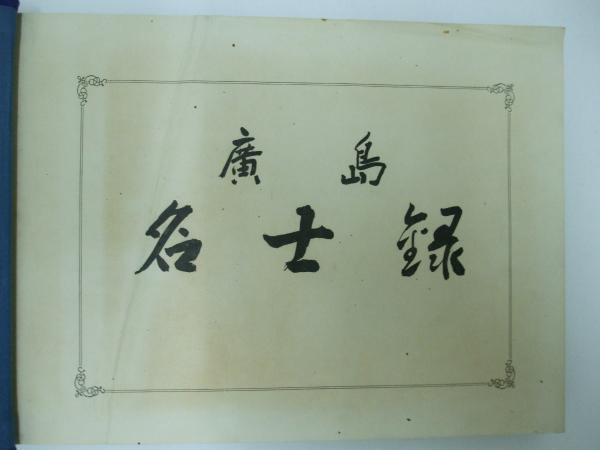 廣島
名士録